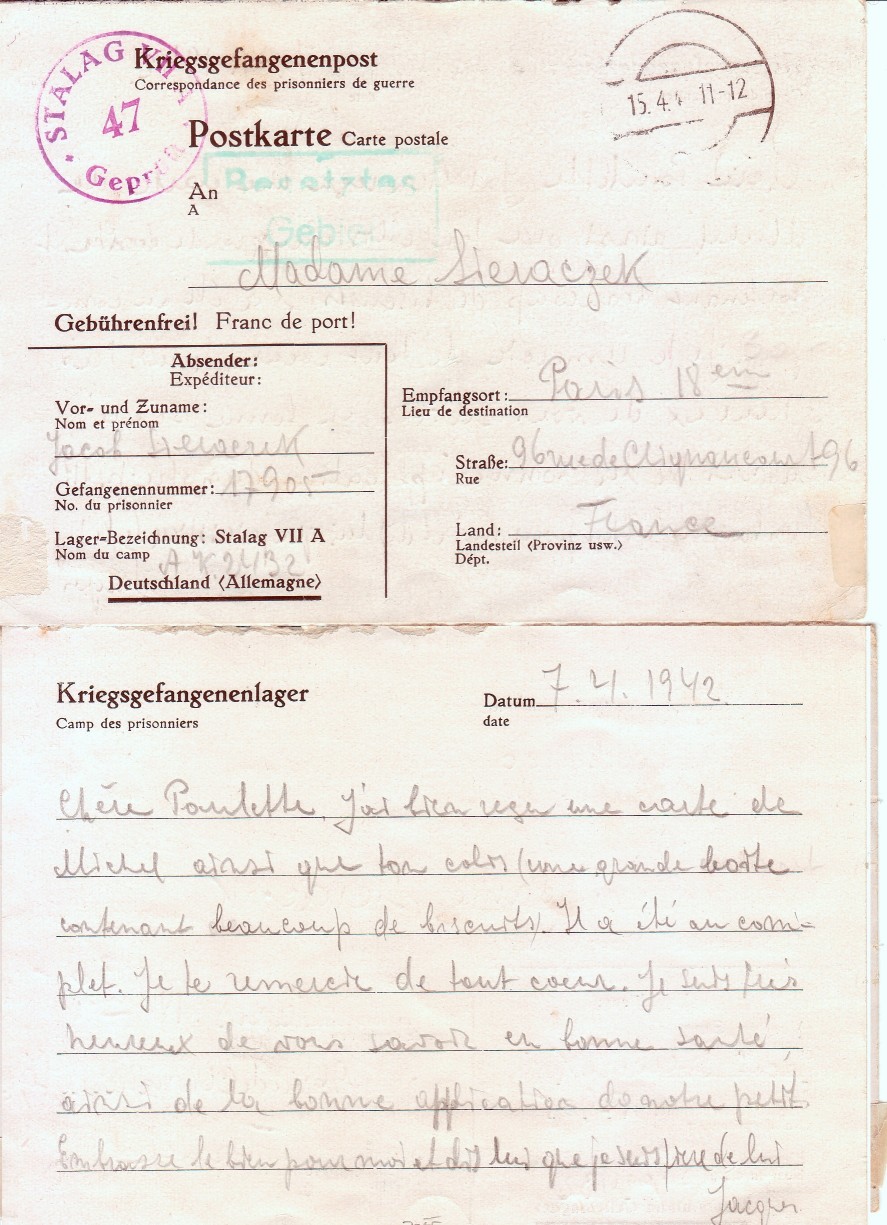 STALAG VII
47
Geprüft
Kriegsgefangenenpost
Correspondance des prisonniers de guerre
15.4. 11-12
Postkarte Carte postale
Besetztes
Gebiet
An
A
Madame Sieraczek
Gebührenfrei! Franc de port!
Absender:
Expéditeur:
Vor- und Zuname:
Nom et prénom
Jacob
Gefangenennummer: 17905
No. du prisonnier
Lager-Bezeichnung: Stalag VII A
Nom du camp
A K 2432
Deutschland (Allemagne)
Empfangsort: Paris 18 em
Lieu de destination
Straße: 96 rue de Clignancourt 96
Rue
Land: France
Landesteil (Provinz usw.)
Dépt.
Kriegsgefangenenlager
Camp des prisonniers
Datum 7. 4. 1942
date
Chère Paulette, J'ai bien reçu une carte de
Michel ainsi que ton colis (une grande boite
contenant beaucoup de biscuits). Il a été au com-
plet. Je te remercie de tout coeur. Je suis très
heureux de vous savoir en bonne santé
ainsi de la bonne application de notre petit.
Embrasse le bien pour moi et dis lui que je suis fier de lui
Jacques